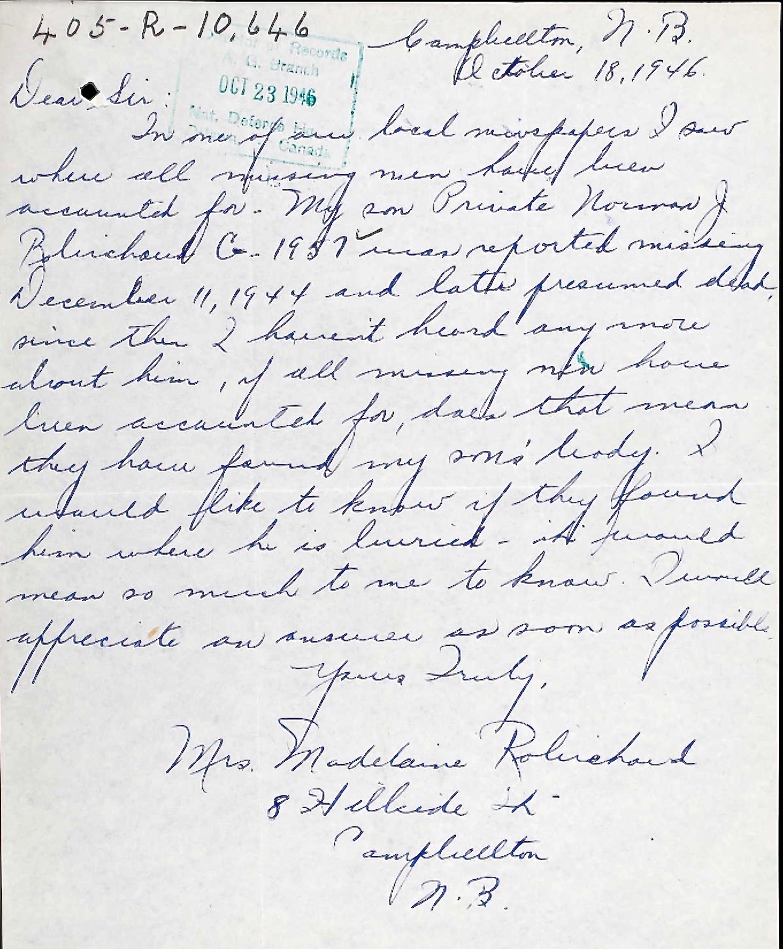 405-R-10,646
Campbellton, N.B.
October 18, 1946.
of Records
A. G. Branch
OCT 23 1946
Nat. Defence
Canada
Dear Sir:
In one of our local newspapers I saw
where all missing men have been
accounted for. My son Private Norman J
Robichaud G-1937 was reported missing
December 11, 1944 and later presumed dead,
since then I haven't heard any more
about him, if all missing men have
been accounted for, does that mean
they have found my sons' body. I
would like to know if they found
him where he is buried - it would
mean so much to me to know. I will
appreciate an answer as soon as possible
Yours Truly,
Mrs. Madelaine Robichaud
8 Hillside St-
Campbellton
N.B.